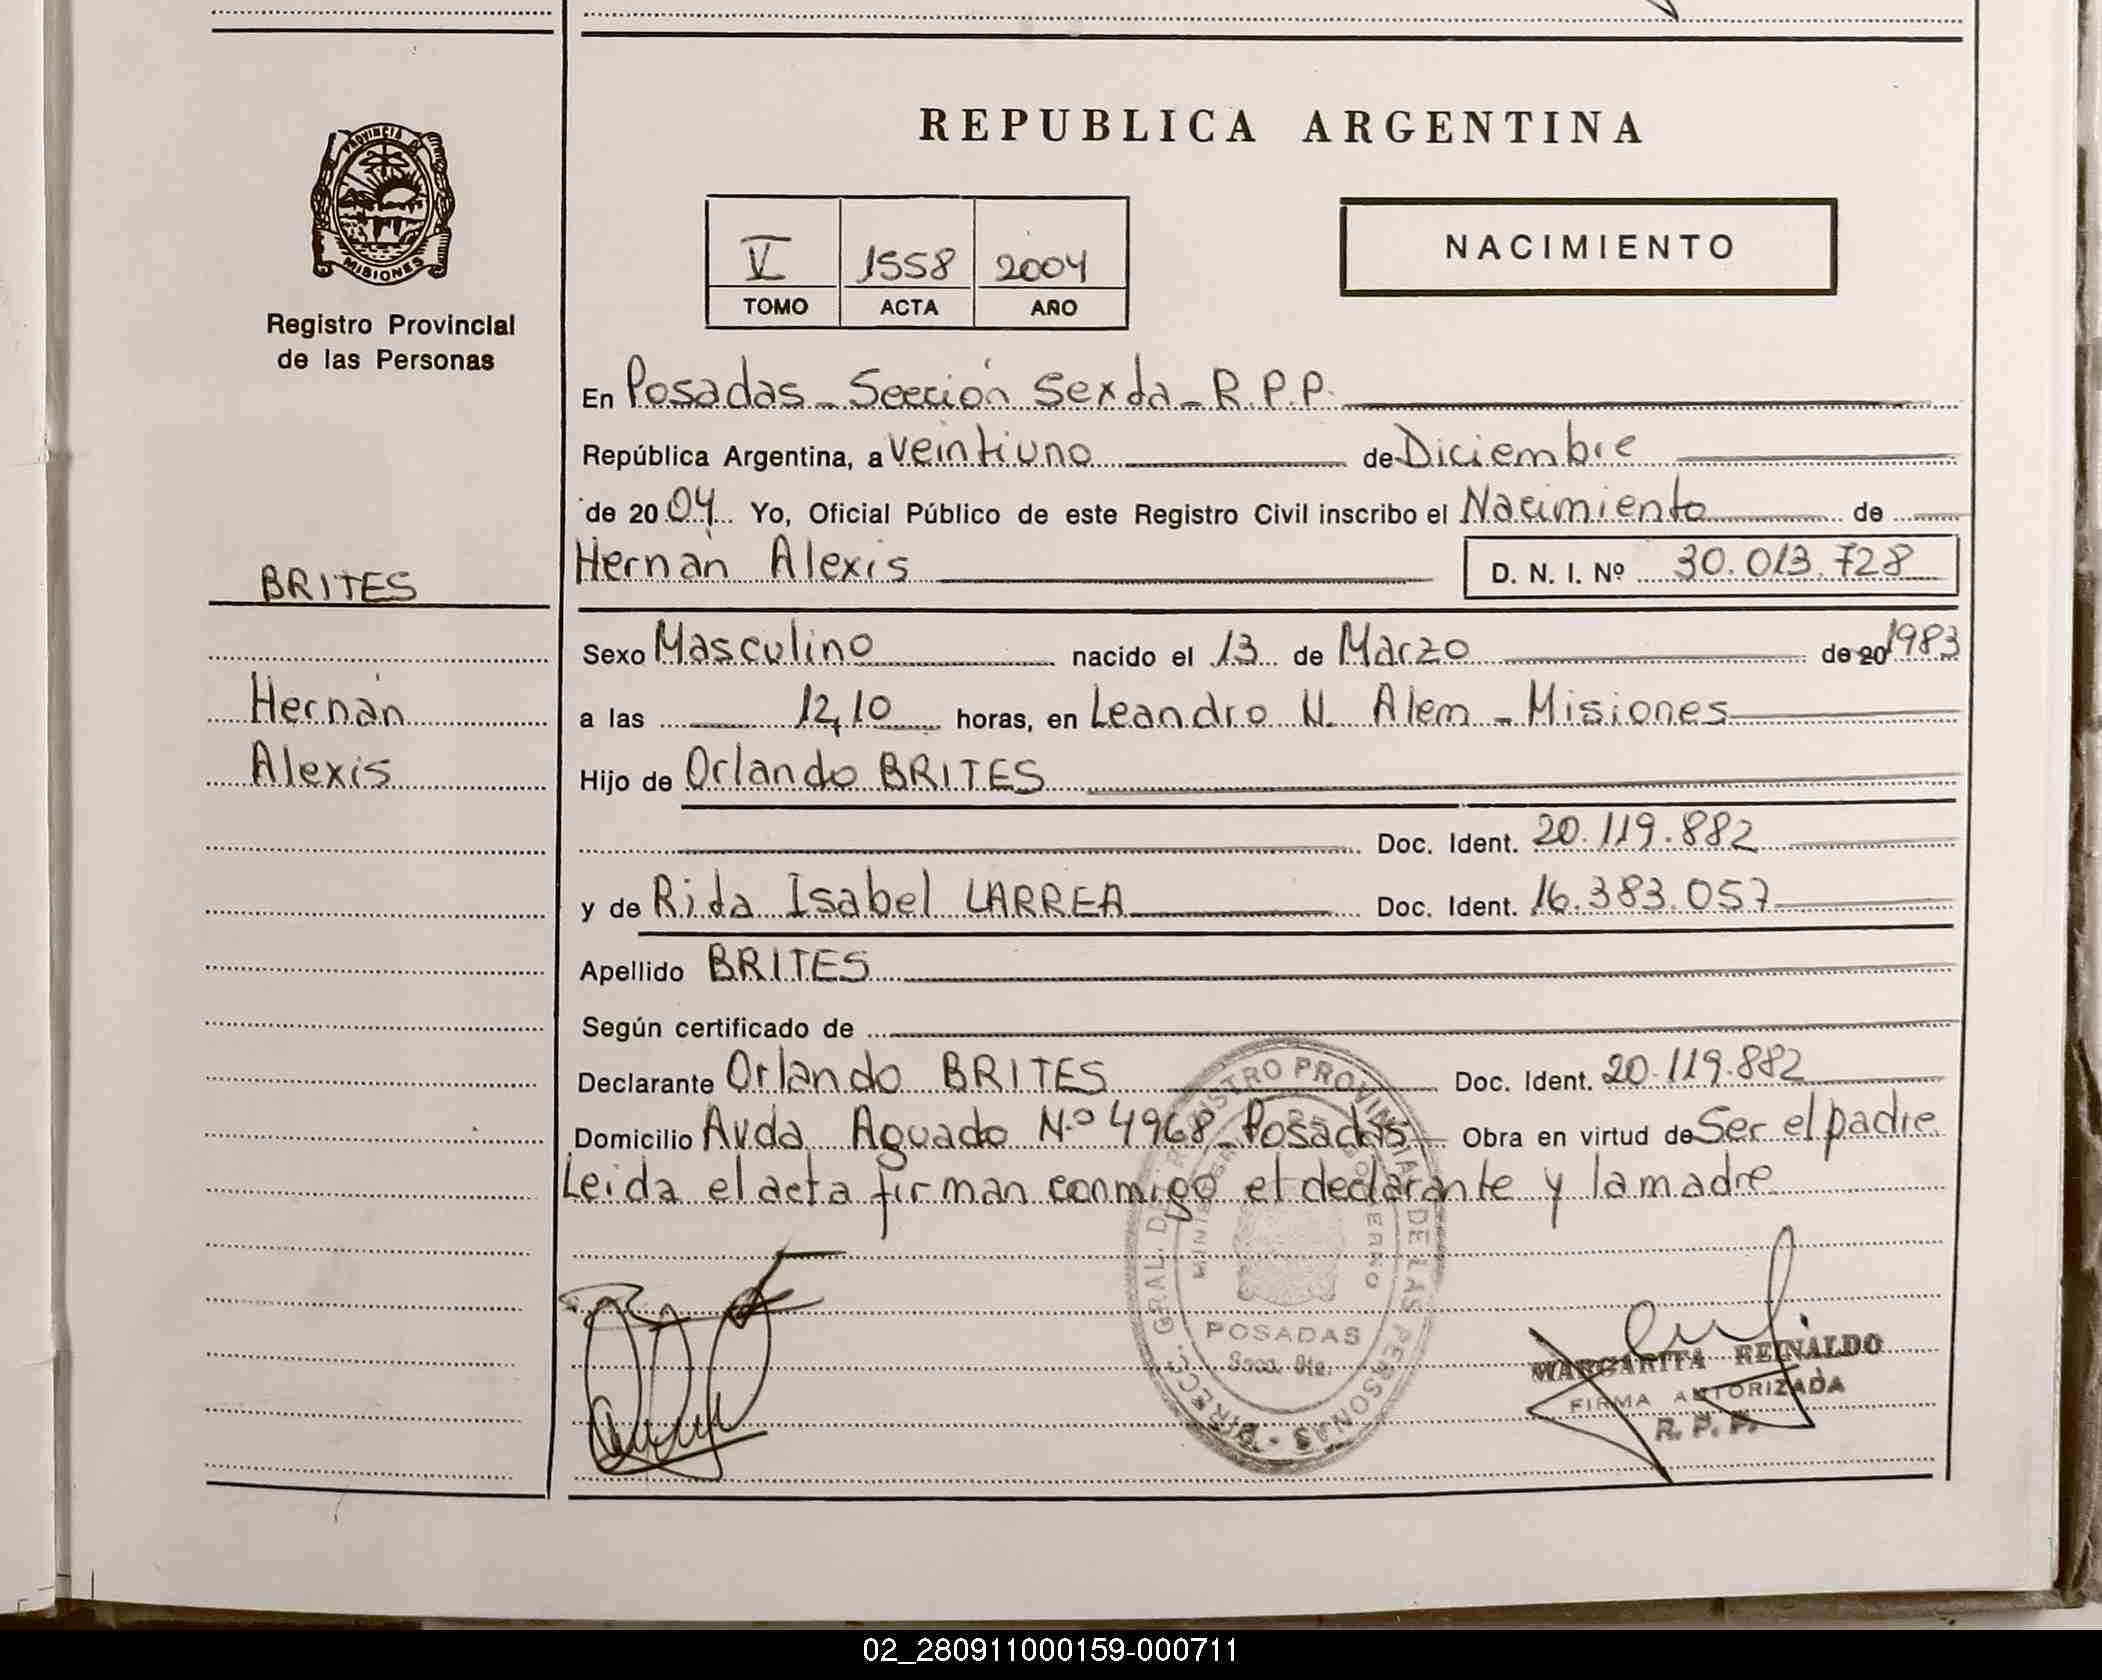 REPUBLICA ARGENTINA
PROVINCIA DE
MISIONES
Registro Provincial
de las Personas
V 1558 2004
TOMO ACTA AÑO
NACIMIENTO
En Posadas - Sección Sexta - R.P.P.
República Argentina, a veintiuno de Diciembre
de 2004 Yo, Oficial Público de este Registro Civil inscribo el Nacimiento de
Hernán Alexis D. N. I. Nº 30.013.728
BRITES
Hernán
Alexis
Sexo Masculino nacido el 13 de Marzo de 20 1983
a las 12,10 horas, en Leandro N. Alem - Misiones
Hijo de Orlando BRITES
Doc. Ident. 20.119.882
y de Rida Isabel LARREA Doc. Ident. 16.383.057
Apellido BRITES
Según certificado de
Declarante Orlando BRITES Doc. Ident. 20.119.882
Domicilio Avda Aguado N.º 4968 - Posadas Obra en virtud de Ser el padre
Leida el acta firman conmigo el declarante y la madre
DIRECC. GRAL. DE REGISTRO PROVINCIAL DE LAS PERSONAS
MINISTERIO DE GOBIERNO
POSADAS
Secc. 6ta.
MARGARITA REINALDO
FIRMA AUTORIZADA
R. P. P.
02_280911000159-000711